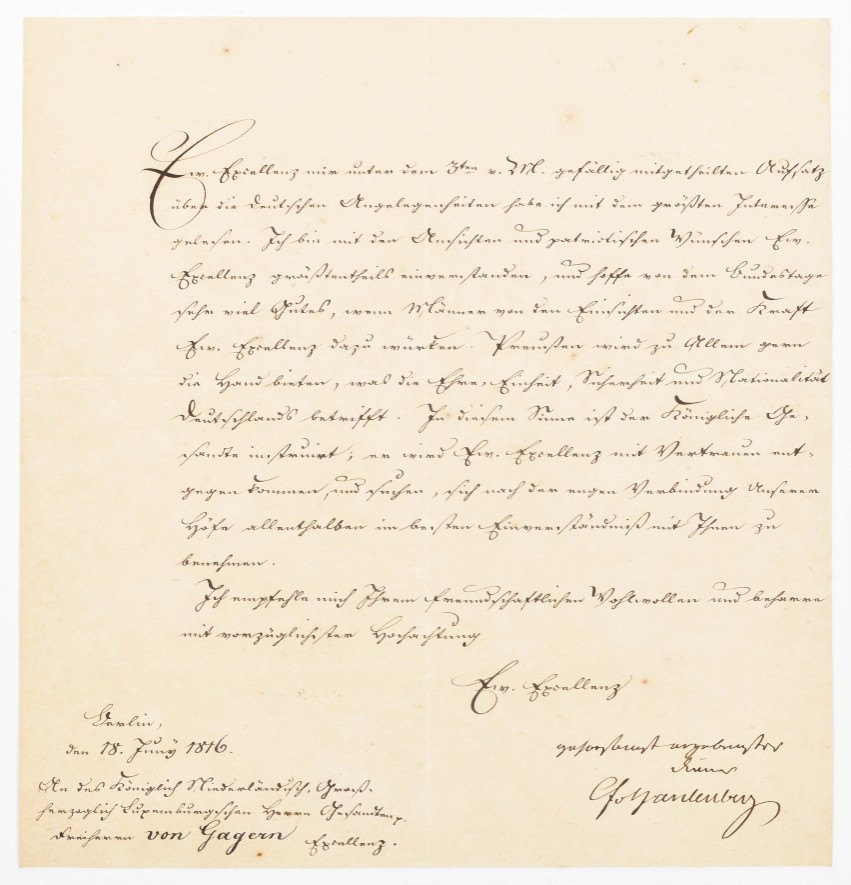 Ew. Excellenz mir unter dem 3ten v. M. gefällig mitgetheilten Aufsatz
über die deutschen Angelegenheiten habe ich mit dem größten Interesse
gelesen. Ich bin mit den Ansichten und patriotischen Wünschen Ew.
Excellenz größtentheils einverstanden, und hoffe von dem Bundestage
sehr viel Gutes, wenn Männer von den Einsichten und der Kraft
Ew. Excellenz dazu würken. Preußen wird zu Allem gern
die Hand bieten, was die Ehre, Einheit, Sicherheit und Nationalität
Deutschlands betrifft. In diesem Sinne ist der Königliche Ge-
sandte instruirt; er wird Ew. Excellenz mit Vertrauen ent-
gegen kommen, und suchen, sich nach der engen Verbindung Unserer
Höfe allenthalben im besten Einverständniß mit Ihnen zu
benehmen.
Ich empfehle mich Ihrem freundschaftlichen Wohlwollen und beharre
mit vorzüglichster Hochachtung
Ew. Excellenz
Berlin,
den 18. Juny 1816.
gehorsamst ergebenster
Diener
CFvHardenberg
An des Königlich Niederländisch, Groß-
herzoglich Luxemburgischen Herrn Gesandten p.
Freiherrn von Gagern Excellenz.